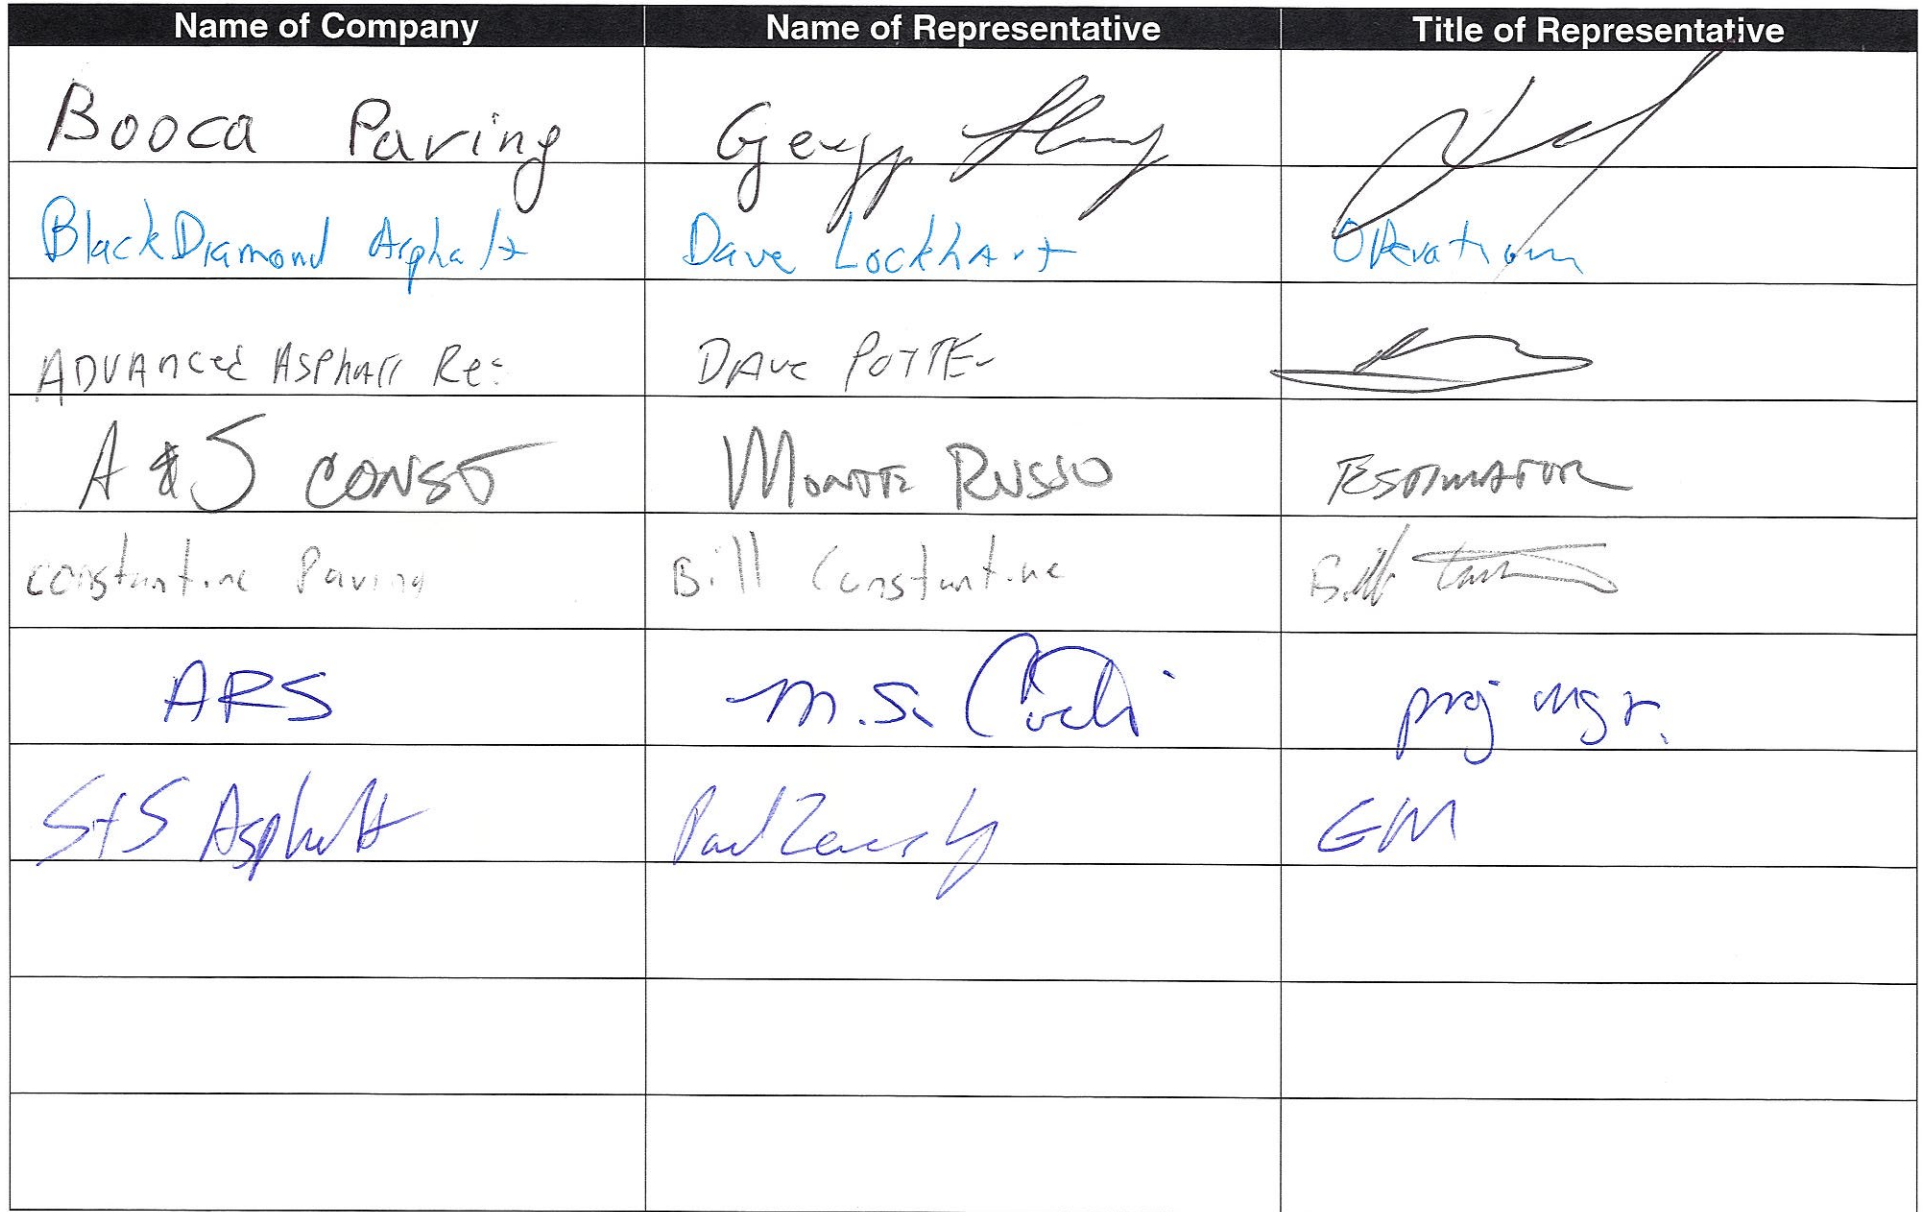 Name of Company Name of Representative Title of Representative
Booca Paving
BlackDiamond Asphalt Dave Lockhart Operations
ADVANCED ASPHALT Re: DAVE POTTER
A & S CONST MONTE RUSSO ESTIMATOR
Constantine Paving Bill Constantine Bill
ARS M.S. proj mgr.
S+S Asphalt Paul GM